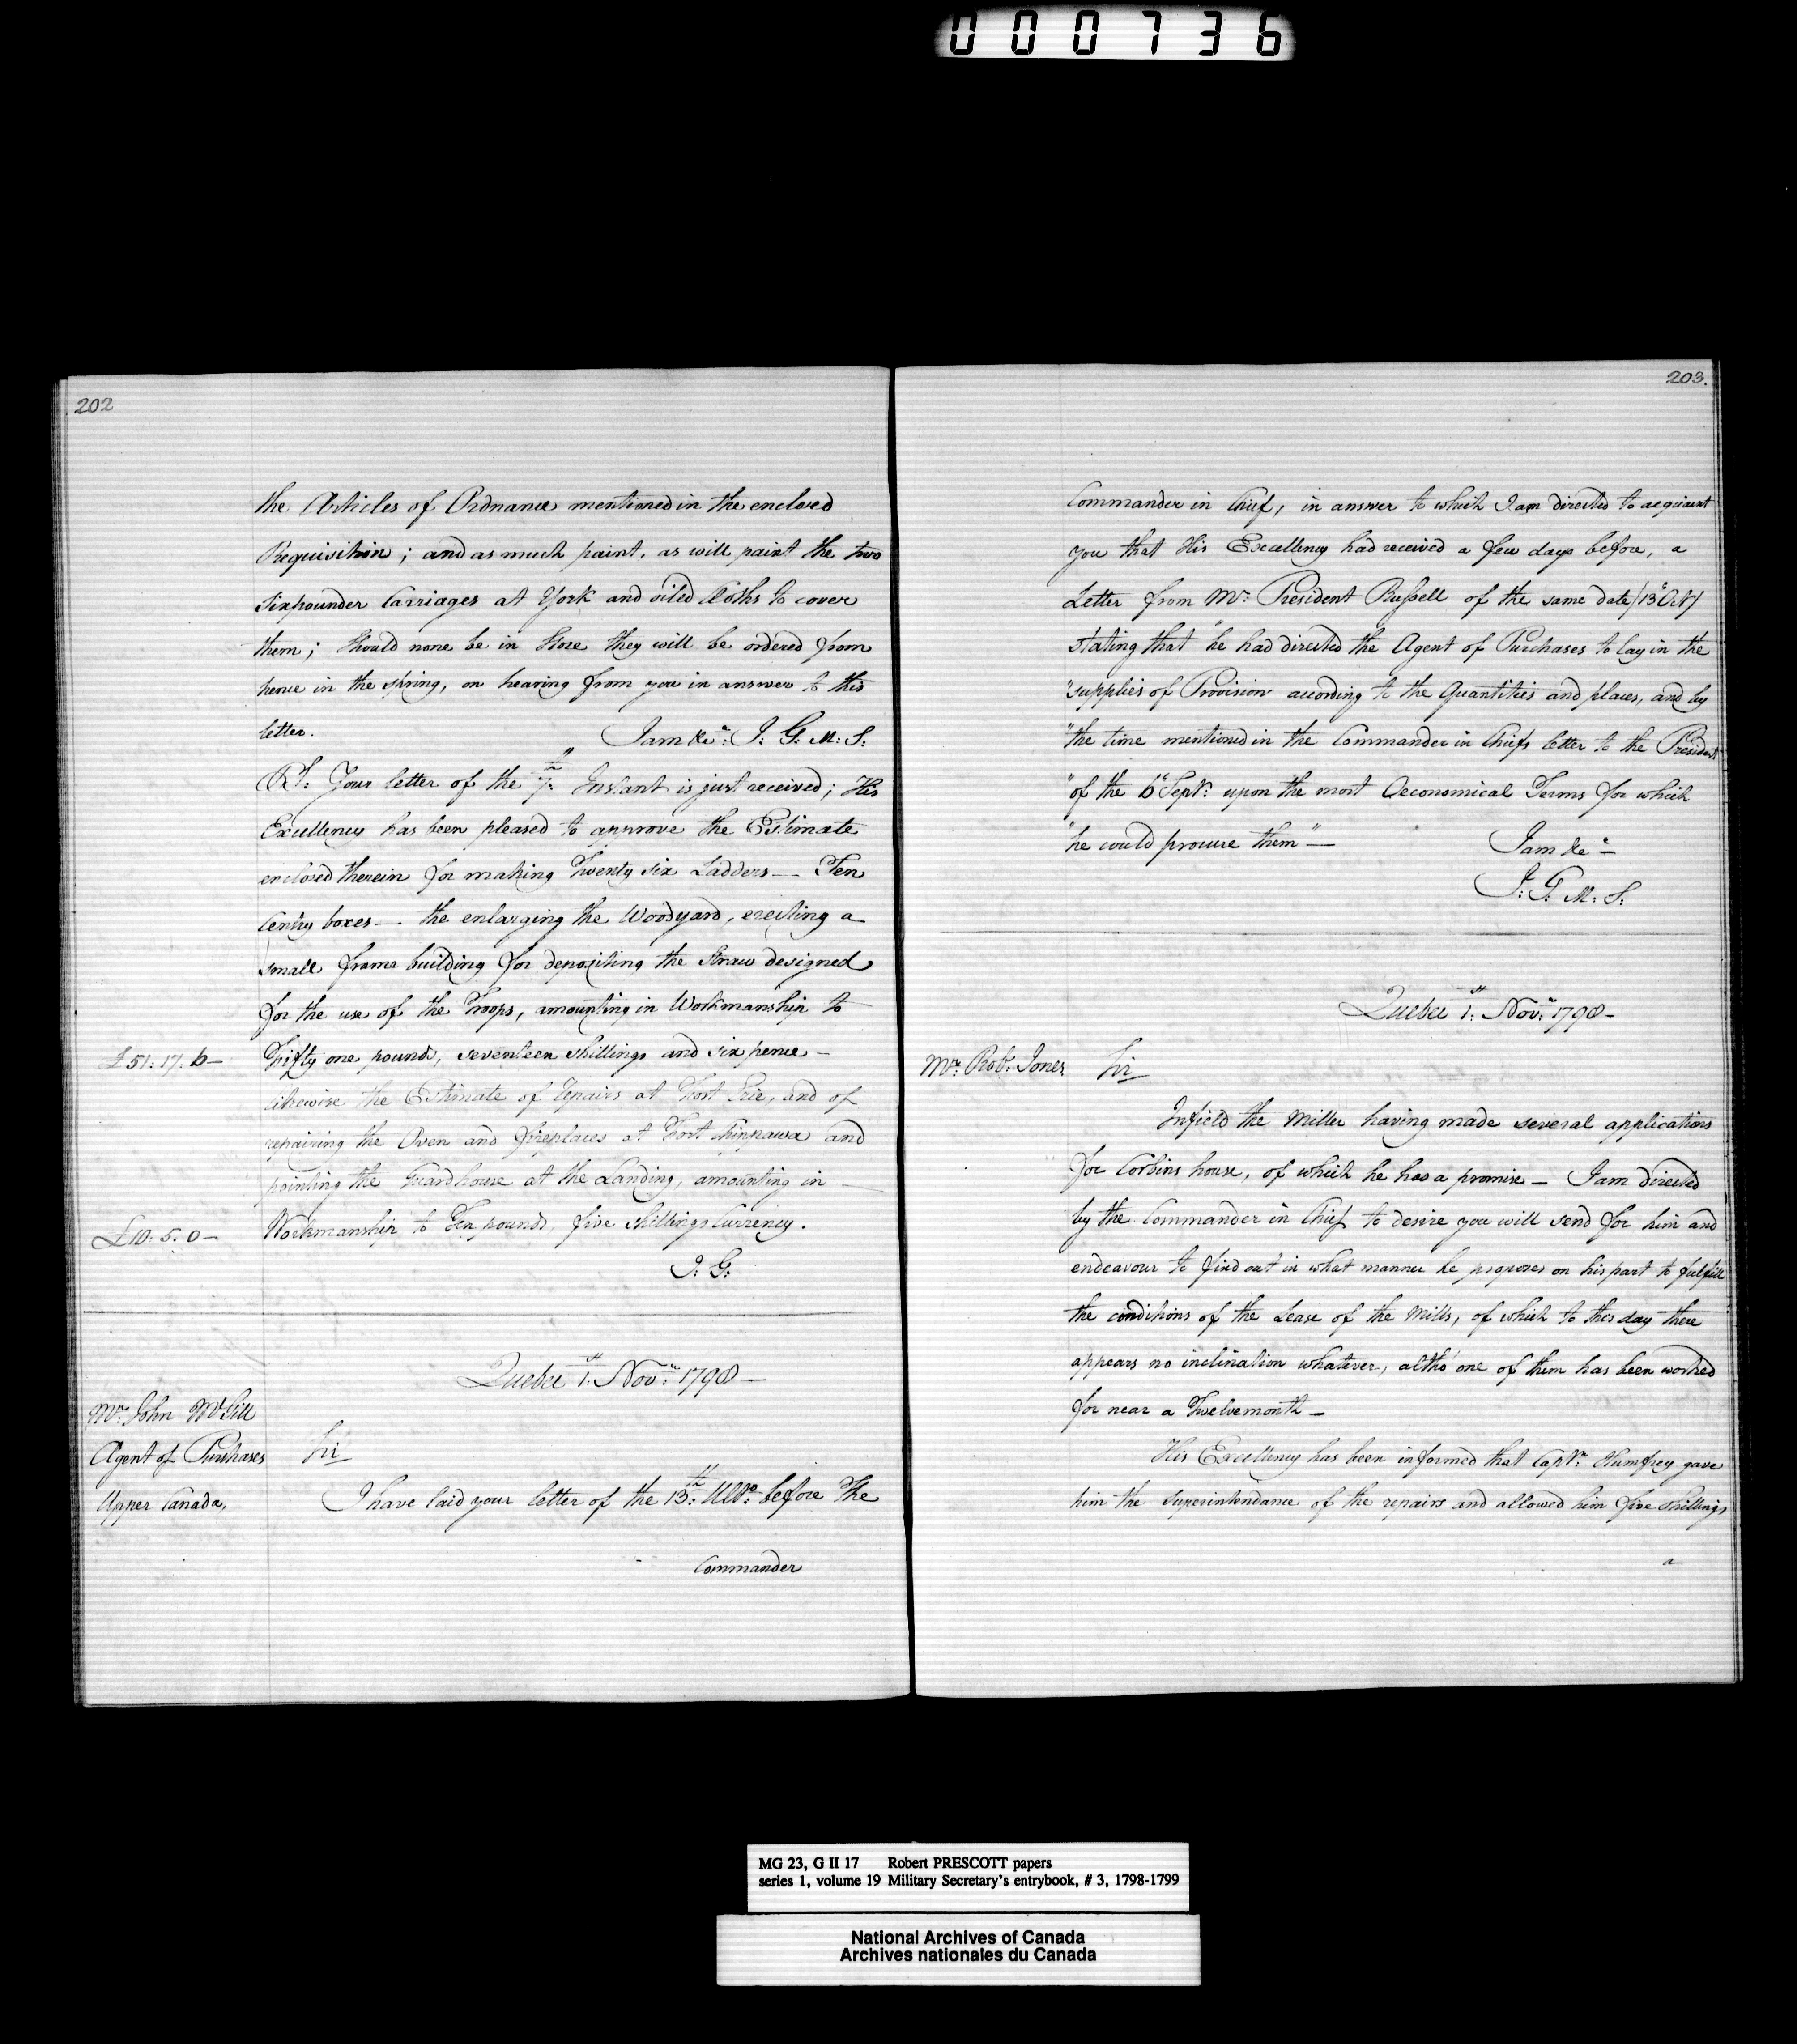 000736
202
the Articles of Ordnance mentioned in the enclosed
Requisition; and as much paint, as will paint the two
Sixpounder Carriages at York and oiled Cloths to cover
them; should none be in Store they will be ordered from
hence in the spring, on hearing from you in answer to this
letter. I am &ca: J: G: M: S:
P.S: Your letter of the 7th: Instant is just received; His
Excellency has been pleased to approve the Estimate
enclosed therein for making Twenty six Ladders — Ten
Centry boxes — the enlarging the Woodyard, erecting a
small frame building for depositing the Straw designed
for the use of the Troops, amounting in Workmanship to
£51: 17: 6 — Fifty one pounds, seventeen shillings and six pence —
likewise the Estimate of repairs at Fort Erie, and of
repairing the Oven and fireplaces at Fort Chippawa and
pointing the Guardhouse at the Landing, amounting in —
£10: 5: 0 — Workmanship to Ten pounds, five shillings Currency.
J: G:
Quebec 1st: Novr: 1798 —
Mr: John McGill
Agent of Purchases
Upper Canada,
Sir
I have laid your letter of the 13th: Ulto: before The
Commander
203.
Commander in Chief, in answer to which I am directed to acquaint
you that His Excellency had received a few days before, a
Letter from Mr: President Russell of the same date /13th Oct/
stating that "he had directed the Agent of Purchases to lay in the
"supplies of Provision according to the Quantities and places, and by
"the time mentioned in the Commander in Chiefs letter to the President
"of the 6th Septr: upon the most Oeconomical Terms for which
"he could procure them" —
I am &ca —
J: G: M: S:
Quebec 1st: Novr: 1798 —
Mr: Robt: Jones Sir
Infield the Miller having made several applications
for Corbins house, of which he has a promise — I am directed
by the Commander in Chief to desire you will send for him and
endeavour to find out in what manner he proposes on his part to fulfill
the conditions of the Lease of the Mills, of which to this day there
appears no inclination whatever, altho' one of them has been worked
for near a Twelvemonth —
His Excellency has been informed that Captn: Humfrey gave
him the Superintendance of the repairs and allowed him five Shillings
a
MG 23, G II 17 Robert PRESCOTT papers
series 1, volume 19 Military Secretary's entrybook, # 3, 1798-1799
National Archives of Canada
Archives nationales du Canada